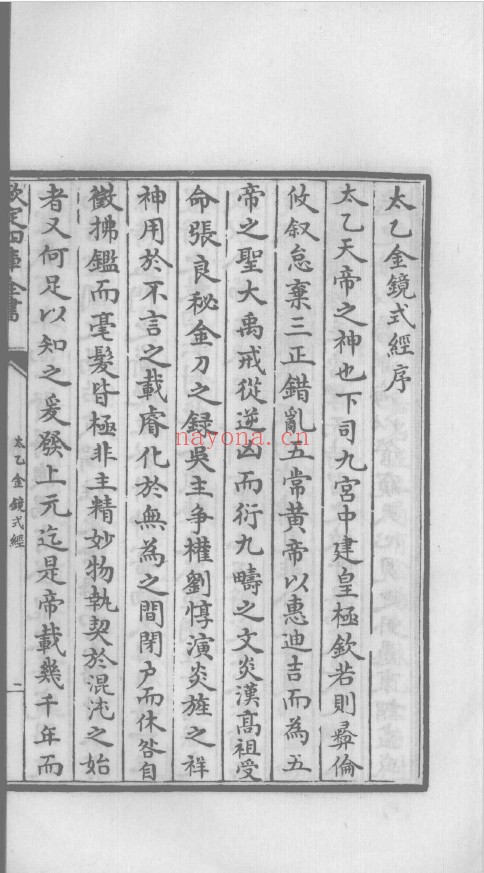 太乙金鏡式經序
太乙天帝之神也下司九宮中建皇極欽若則彞倫
攸叙怠棄三正錯亂五常黃帝以惠迪吉而為五
帝之聖大禹戒從逆凶而衍九疇之文炎漢高祖受
命張良秘金刀之録吳主爭權劉惇演炎旌之祥
神用於不言之載睿化於無為之間閉户而休咎自
徵拂鑑而毫髮皆極非主精妙物執契於混沌之始
者又何足以知之爰發上元迄是帝載幾千年而
欽定四庫全書
太乙金鏡式經
一
nayona.cn